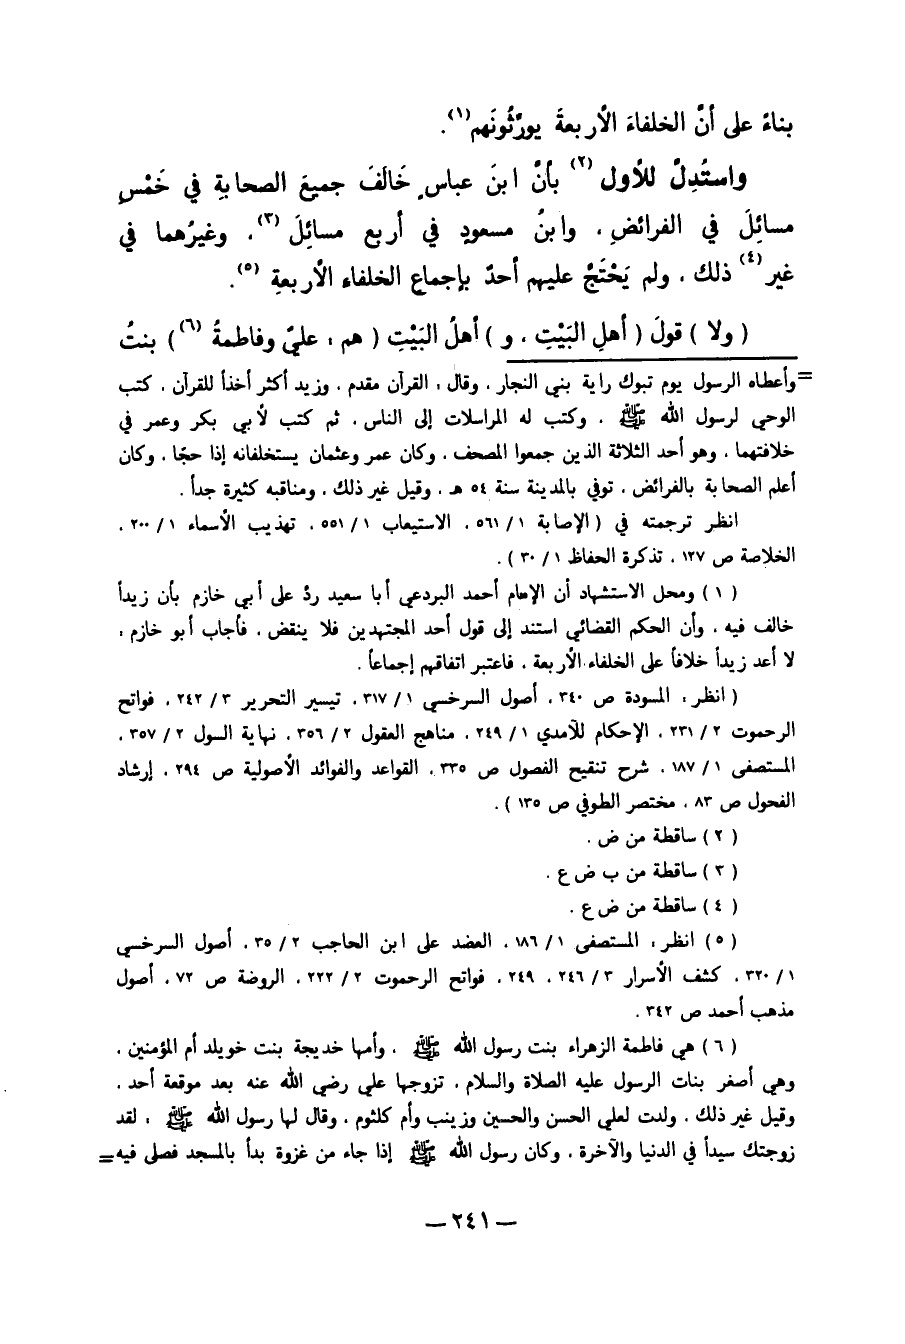 بناءً على أنَّ الخلفاءَ الأربعةَ يورِّثُونَهم(١).
واستُدِلَّ للأول (٢) بأنَّ ابنَ عباسٍ خَالَفَ جميعَ الصحابةِ في خَمْسِ
مسائِلَ في الفرائضِ، وابنُ مسعودٍ في أربع مسائِلَ (٣)، وغيرُهما في
غير(٤) ذلك، ولم يَحْتَجَّ عليهم أحدٌ بإجماع الخلفاء الأربعةِ (٥).
( ولا ) قولَ ( أهلِ البَيْتِ، و ) أهلُ البَيْتِ ( هم : عليٌ وفاطمةُ (٦) ) بنتُ
=وأعطاه الرسول يوم تبوك راية بني النجار، وقال : القرآن مقدم، وزيد أكثر أخذاً للقرآن، كتب
الوحي لرسول الله ﷺ ، وكتب له المراسلات إلى الناس، ثم كتب لأبي بكر وعمر في
خلافتهما، وهو أحد الثلاثة الذين جمعوا المصحف، وكان عمر وعثمان يستخلفانه إذا حجّا، وكان
أعلم الصحابة بالفرائض، توفي بالمدينة سنة ٥٤ هـ، وقيل غير ذلك، ومناقبه كثيرة جداً.
انظر ترجمته في ( الإصابة ١ / ٥٦١، الاستيعاب ١ / ٥٥١، تهذيب الأسماء ١ / ٢٠٠،
الخلاصة ص ١٢٧، تذكرة الحفاظ ١ / ٣٠ ).
( ١ ) ومحل الاستشهاد أن الإمام أحمد البردعي أبا سعيد ردَّ على أبي خازم بأن زيداً
خالف فيه، وأن الحكم القضائي استند إلى قول أحد المجتهدين فلا ينقض، فأجاب أبو خازم :
لا أعد زيداً خلافاً على الخلفاء الأربعة، فاعتبر اتفاقهم إجماعاً.
( انظر : المسودة ص ٣٤٠، أصول السرخسي ١ / ٣١٧، تيسير التحرير ٣ / ٢٤٢، فواتح
الرحموت ٢ / ٢٣١، الإحكام للآمدي ١ / ٢٤٩، مناهج العقول ٢ / ٣٥٦، نهاية السول ٢ / ٣٥٧،
المستصفى ١ / ١٨٧، شرح تنقيح الفصول ص ٣٣٥، القواعد والفوائد الأصولية ص ٢٩٤، إرشاد
الفحول ص ٨٣، مختصر الطوفي ص ١٣٥ ).
( ٢ ) ساقطة من ض.
( ٣ ) ساقطة من ب ض ع.
( ٤ ) ساقطة من ض ع.
( ٥ ) انظر : المستصفى ١ / ١٨٦، العضد على ابن الحاجب ٢ / ٣٥، أصول السرخسي
١ / ٣٢٠، كشف الأسرار ٣ / ٢٤٦، ٢٤٩، فواتح الرحموت ٢ / ٢٢٢، الروضة ص ٧٢، أصول
مذهب أحمد ص ٣٤٢.
( ٦ ) هي فاطمة الزهراء بنت رسول الله ﷺ ، وأمها خديجة بنت خويلد أم المؤمنين،
وهي أصغر بنات الرسول عليه الصلاة والسلام، تزوجها علي رضي الله عنه بعد موقعة أحد،
وقيل غير ذلك، ولدت لعلي الحسن والحسين وزينب وأم كلثوم، وقال لها رسول الله ﷺ : لقد
زوجتك سيداً في الدنيا والآخرة، وكان رسول الله ﷺ إذا جاء من غزوة بدأ بالمسجد فصلى فيه=
— ٢٤١ —